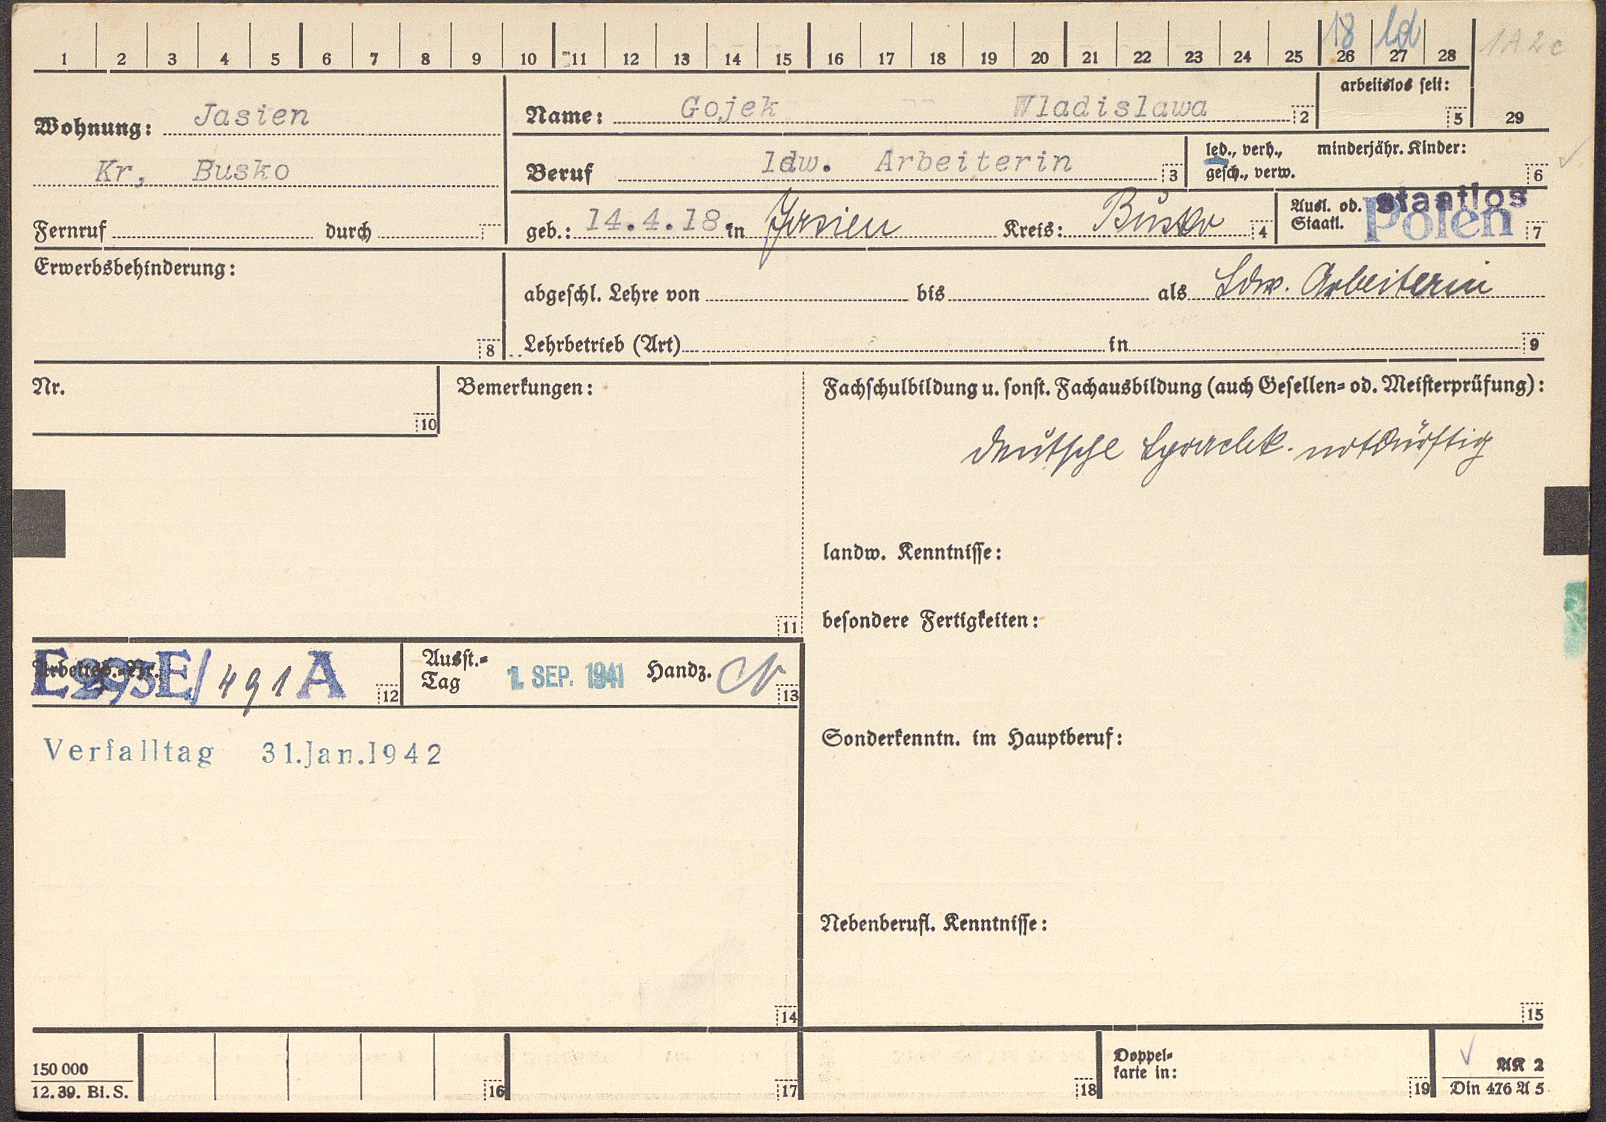 1 2 3 4 5 6 7 8 9 10 11 12 13 14 15 16 17 18 19 20 21 22 23 24 25 26 27 28
18 ld
1A2c
arbeitslos seit:
5
29
Wohnung: Jasien
Kr, Busko
Name: Gojek -- Wladislawa
2
Beruf ldw. Arbeiterin
3
led., verh., minderjähr. Kinder:
gesch., verw.
6
Fernruf durch
7
geb.: 14.4.18 in Jasien Kreis: Busko
4
Ausl. od. staatlos
Staatl. Polen
7
Erwerbsbehinderung:
8
abgeschl. Lehre von bis als Ldw. Arbeiterin
Lehrbetrieb (Art) in
9
Nr.
10
Bemerkungen:
11
Fachschulbildung u. sonst. Fachausbildung (auch Gesellen= od. Meisterprüfung):
deutsche Sprachk. notdürftig
landw. Kenntnisse:
besondere Fertigkeiten:
Sonderkenntn. im Hauptberuf:
Nebenberufl. Kenntnisse:
15
Arbeitsb.=Nr.
E 293 E/491 A
12
Ausst.= Tag 1. SEP. 1941 Handz.
13
Verfalltag 31.Jan.1942
14
150 000
12. 39. Bl. S.
16
17
18
Doppel=
karte in:
19
AK 2
Din 476 A 5